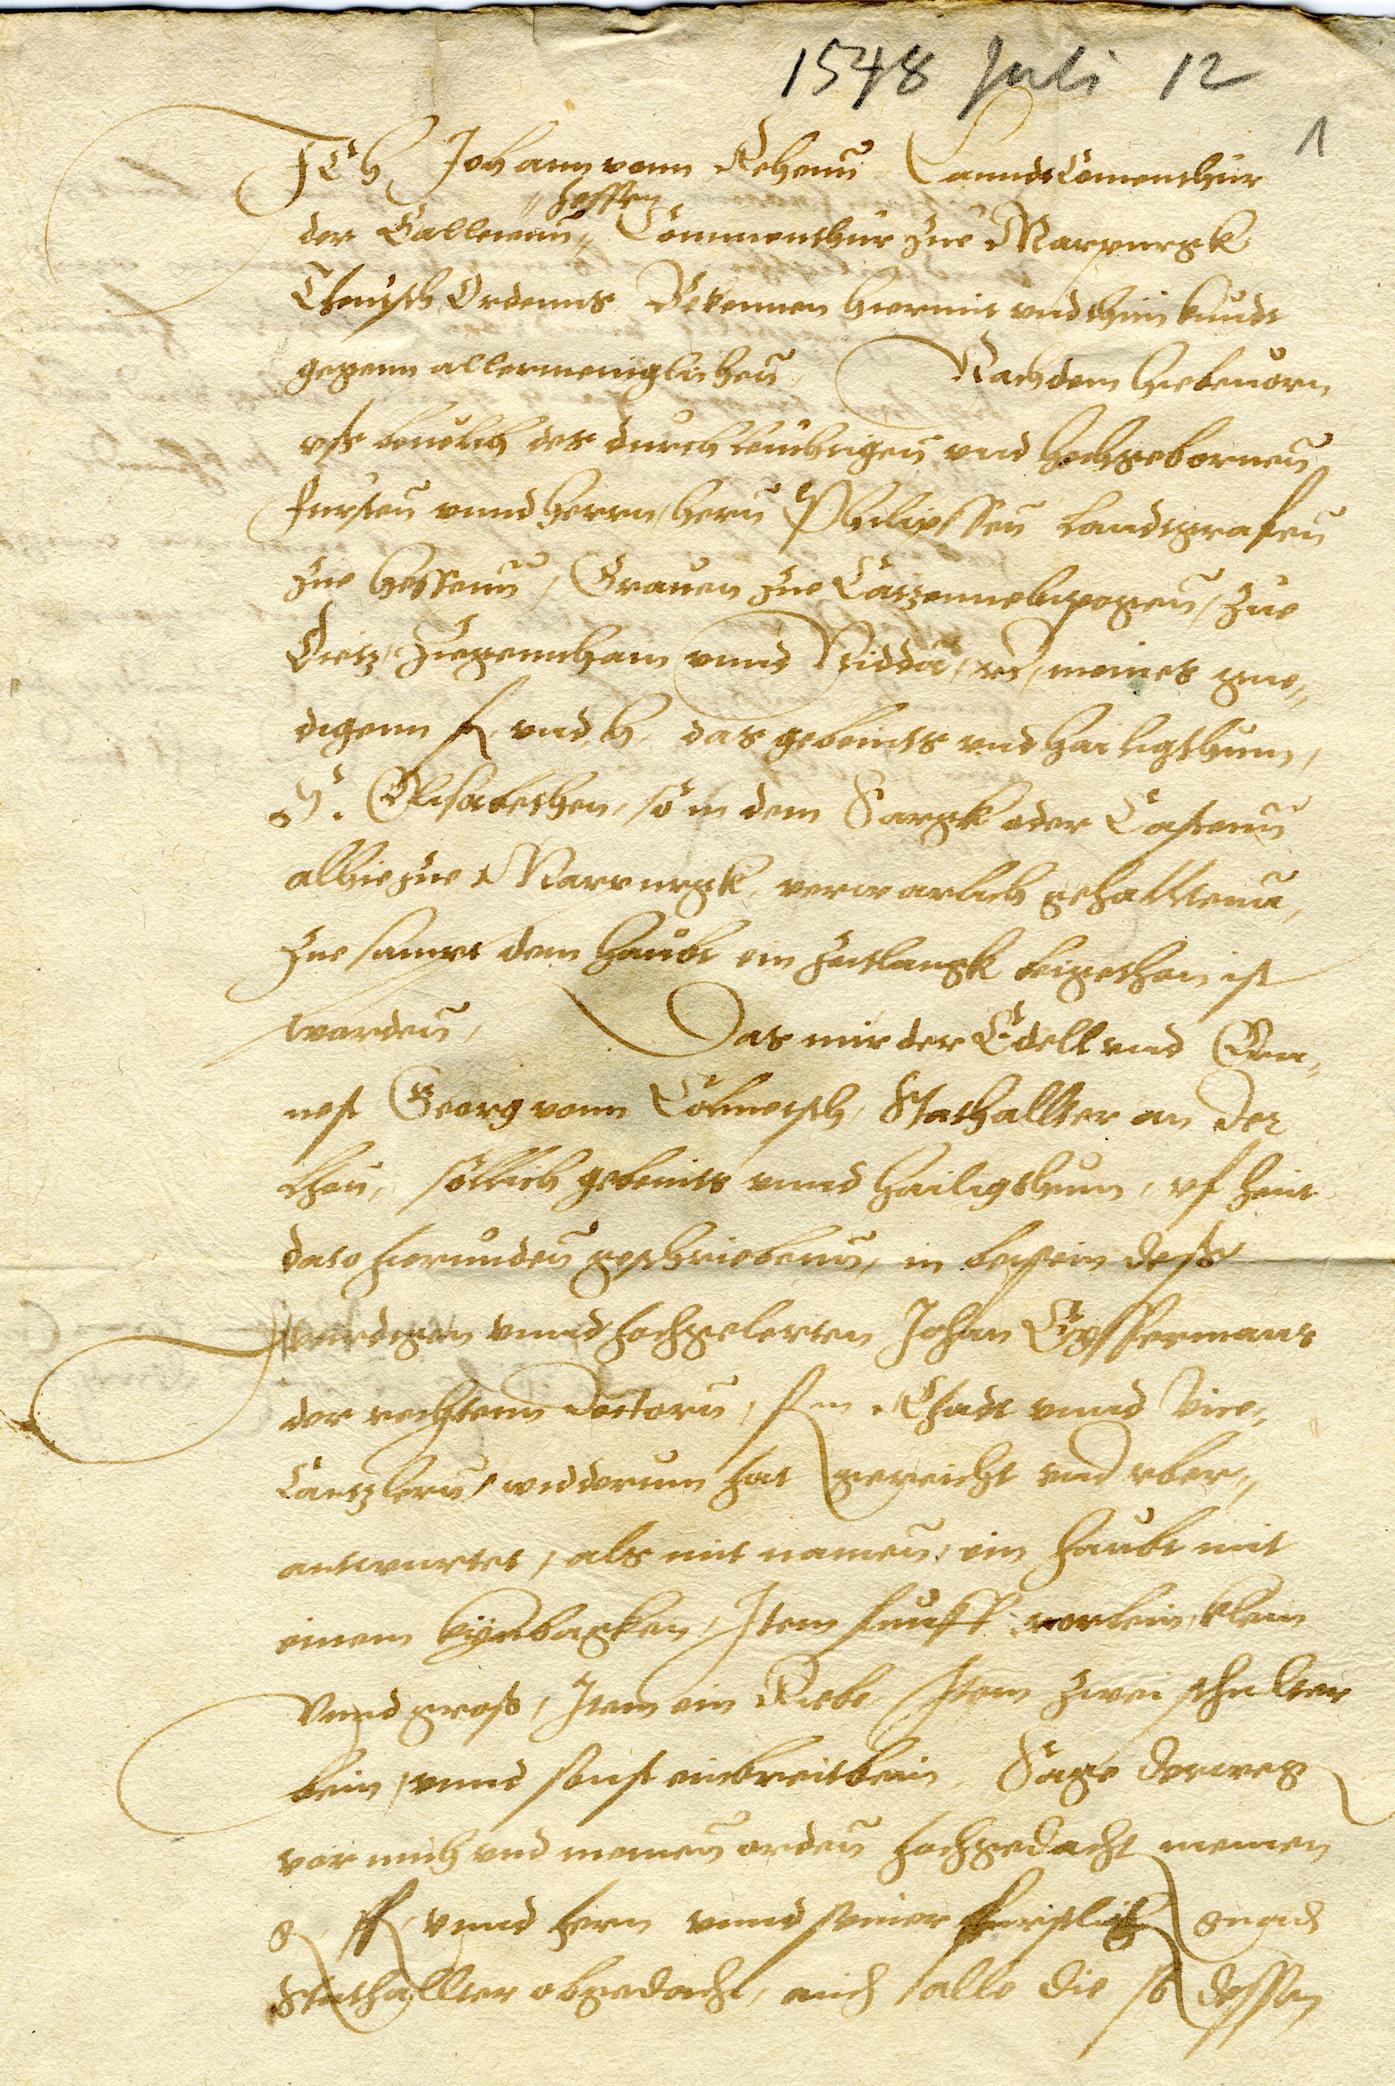 1548 Juli 12
1
ICh Johann vonn Rehenn LanndtComenthur
hessen
der Balleienn Commenthur zue Marpurgk
Theutsch Ordenns Bekennen hiermit vnd thun kundt
gegenn allermeniglichen, Nachdem hiebeuorn
vß beuelch des durchleuchtigen vnd hochgebornen
fursten vnnd herrn, hern Philipssen Landtgrafen
zue hessenn, Grauen zue Catzennelnpogen, zue
Dietz, Ziegennhain vnnd Nidda, rc, meines gne,,
digenn f. vnd h. das gebeints vnd hailigthum,
S. Elisabethen, so in dem Sargk oder Castenn
alhie zue Marpurgk, verwarlich gehalttenn,
zue sampt dem haubt ein zeitlangk beigethan ist
worden, Das mir der Edell vnd Ern,,
nest Georg vonn Colmetsch, Stathallter an der
Lhon, sollich gebeints vnnd hailigthum, vf heut
dato hierunden geschriebenn, in beysein deß
wurdigen vnnd hochgelerten Johan Eyssermans
der rechtenn Doctorn, Rhadt vnnd Vice,,
Cantzlern, widderum hat gereicht vnd vber,,
antwurtet, als mit namen, ein haubt mit
einem kynbagken, Item funff rorlein, klein
Vnnd groß, Item ein Riebe Item zwei schulter
bein, vnnd sonst ein breit bein, Sage derweg
vor mich vnd meinen orden hochgedacht meinen
g. f. vnnd hern vnnd seiner furstlich gnad
Stathallter obgedacht, auch alle die so dessen